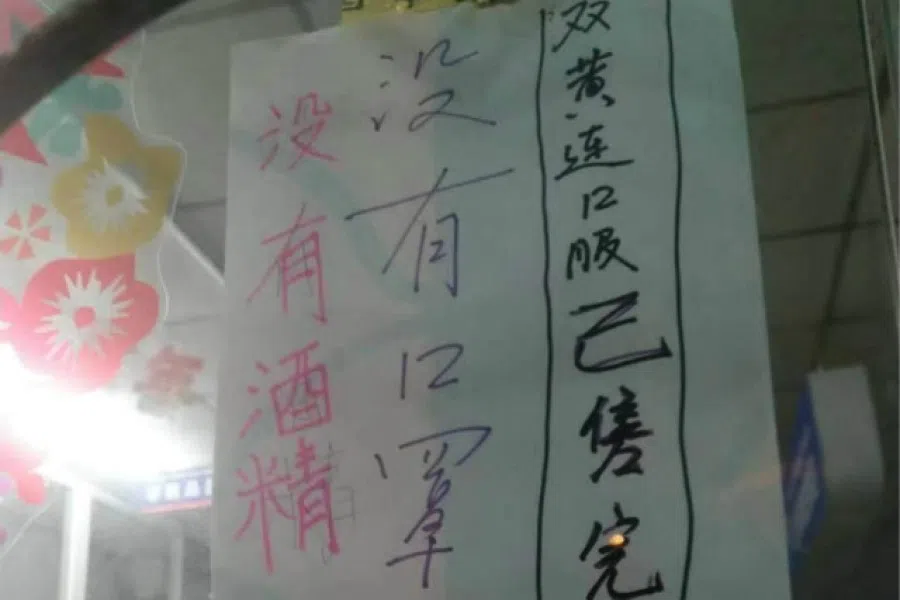 双黄连口服已售完
没有口罩
没有酒精